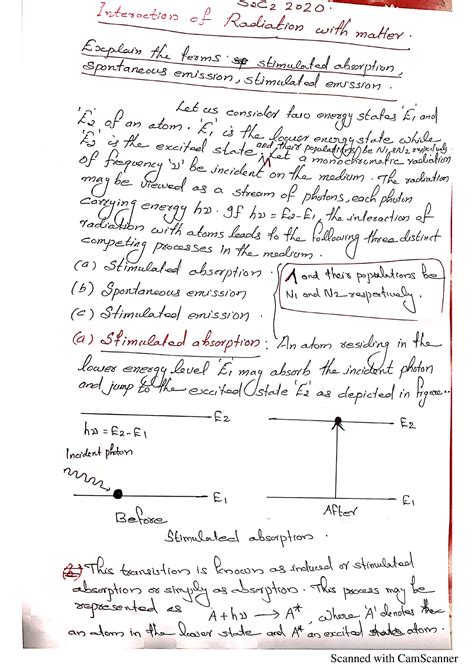 SDC2 2020.
Interaction of Radiation with matter.
Explain the terms. stimulated absorption,
spontaneous emission, stimulated emission.
Let us consider two energy states 'E₁' and
'E₂' of an atom. 'E₁' is the lower energy state while
and their populations be N₁, N₂ respectively.
'E₂' is the excited state. ⋀ Let a monochromatic radiation
of frequency 'ν' be incident on the medium. The radiation
may be viewed as a stream of photons, each photon
carrying energy hν. If hν = E₂-E₁, the interaction of
radiation with atoms leads to the following three distinct
competing processes in the medium.
(a) Stimulated absorption.
(b) Spontaneous emission
(c) Stimulated emission.
⋀ and their populations be
N₁ and N₂ respectively.
(a) Stimulated absorption: An atom residing in the
lower energy level 'E₁' may absorb the incident photon
and jump to the excited state 'E₂' as depicted in figure..
E₂
hν = E₂-E₁
Incident photon
E₁
Before
E₂
E₁
After
Stimulated absorption.
This transistion is known as induced or stimulated
absorption or simply as absorption. This process may be
represented as A + hν → A*, where 'A' denotes the
an atom in the lower state and A* an excited state atom.
Scanned with CamScanner